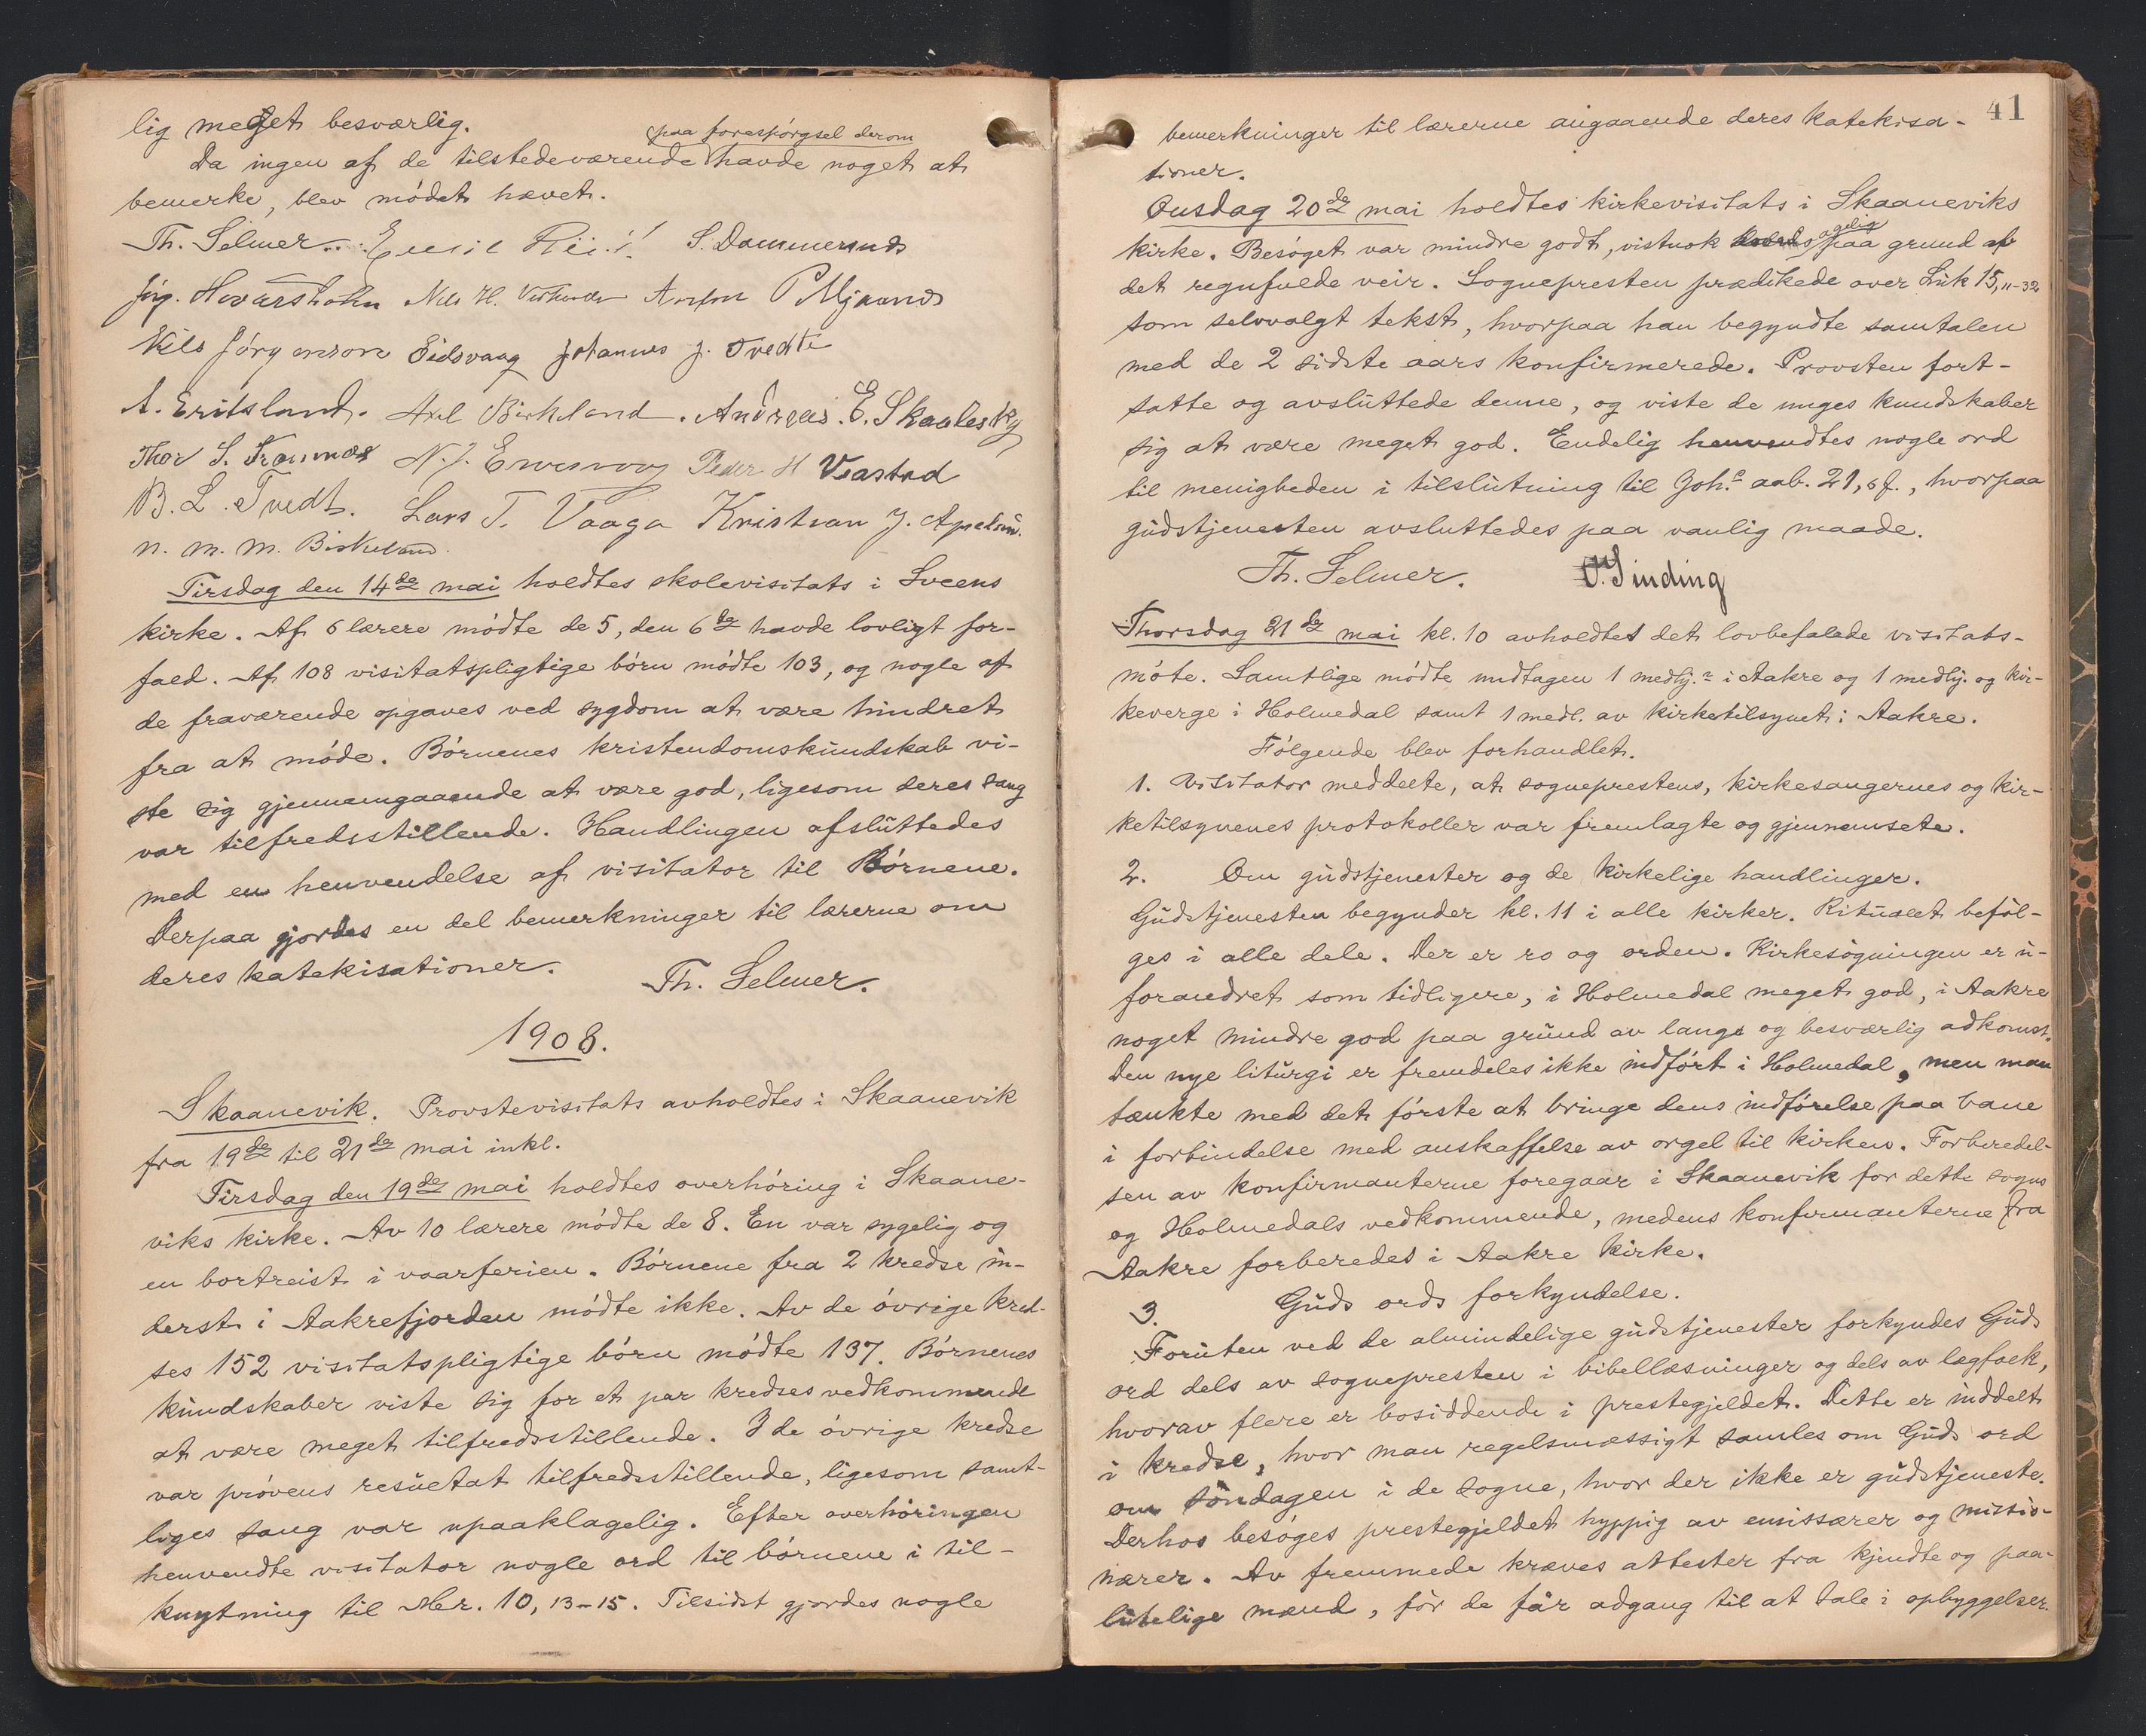 lig meget besværlig.
Da ingen af de tilstedeværende paa forespørgsel derom havde noget at
bemerke, blev mødet hævet.
Th. Selmer. S. Dammerud
Jørg. Hovarsholm Nils H.
Nils Jørgenson Eidsvaag Johannes J. Tvedte
A. Eritsland. Axel Birkeland. Andreas E. Skaalesky
Thor S. Peder H Vastad
B. L. Tvedt. Lars T. Vaaga Kristian J.
N. M. M. Birkeland.
Tirsdag den 14de mai holdtes skolevisitats i Sveens
kirke. Af 6 lærere mødte de 5, den 6de havde lovligt for-
fald. Af 108 visitatspligtige børn mødte 103, og nogle af
de fraværende opgaves ved sygdom at være hindret
fra at møde. Børnenes kristendomskundskab vi-
ste sig gjennemgaaende at være god, ligesom deres sang
var tilfredsstillende. Handlingen afsluttedes
med en henvendelse af visitator til Børnene.
Derpaa gjordes en del bemerkninger til lærerne om
deres katekisationer.
Th. Selmer.
1908.
Skaanevik. Provstevisitats avholdtes i Skaanevik
fra 19de til 21de mai inkl.
Tirsdag den 19de mai holdtes overhøring i Skaane-
viks kirke. Av 10 lærere mødte de 8. En var sygelig og
en bortreist i vaarferien. Børnene fra 2 kredse in-
derst i Aakrefjorden mødte ikke. Av de øvrige kred-
ses 152 visitatspligtige børn mødte 137. Børnenes
kundskaber viste sig for et par kredses vedkommende
at være meget tilfredsstillende. I de øvrige kredse
var prøvens resultat tilfredsstillende, ligesom samt-
liges sang var upaaklagelig. Efter overhøringen
henvendte visitator nogle ord til børnene i til-
knytning til Mr. 10, 13-15. Tilsidst gjordes nogle
41
bemerkninger til lærerne angaaende deres katekisa-
tioner.
Onsdag 20de mai holdtes kirkevisitats i Skaaneviks
kirke. Besøget var mindre godt, vistnok paa grund af
det regnfulde veir. Sognepresten prædikede over Luk 15, 11-32
som selvvalgt tekst, hvorpaa han begyndte samtalen
med de 2 sidste aars konfirmerede. Provsten fort-
satte og avsluttede denne, og viste de unges kundskaber
sig at være meget god. Endelig henvendtes nogle ord
til menigheden i tilslutning til Joh.s aab. 21, 6 f., hvorpaa
gudstjenesten avsluttedes paa vanlig maade.
Th. Selmer. O. Sinding
Thorsdag 21de mai kl. 10 avholdtes det lovbefalede visitats-
møte. Samtlige mødte undtagen 1 medhj.r i Aakre og 1 medhj. og kir-
keverge i Holmedal samt 1 medl. av kirketilsynet i Aakre.
Følgende blev forhandlet.
1. Visitator meddelte, at sogneprestens, kirkesangernes og kir-
ketilsynenes protokoller var fremlagte og gjennemsete.
2. Om gudstjenester og de kirkelige handlinger.
Gudstjenesten begynder kl. 11 i alle kirker. Ritualet beføl-
ges i alle dele. Der er ro og orden. Kirkesøgningen er u-
forandret som tidligere, i Holmedal meget god, i Aakre
noget mindre god paa grund av lang og besværlig adkomst.
Den nye liturgi er fremdeles ikke indført i Holmedal, men man
tænkte med det første at bringe dens indførelse paa bane
i forbindelse med anskaffelse av orgel til kirken. Forberedel-
sen av konfirmanterne foregaar i Skaanevik for dette sogns
og Holmedals vedkommende, medens konfirmanterne fra
Aakre forberedes i Aakre kirke.
3. Guds ords forkyndelse.
Foruten ved de almindelige gudstjenester forkyndes Guds
ord dels av sognepresten i bibellæsninger og dels av lægfolk,
hvorav flere er bosiddende i prestegjeldet. Dette er inddelt
i kredse, hvor man regelsmæssigt samles om Guds ord
om søndagen i de sogne, hvor der ikke er gudstjeneste.
Derhos besøges prestegjeldet hyppig av emissærer og missio-
nærer. Av fremmede kræves attester fra kjendte og paa-
litelige mænd, før de får adgang til at tale i opbyggelser.